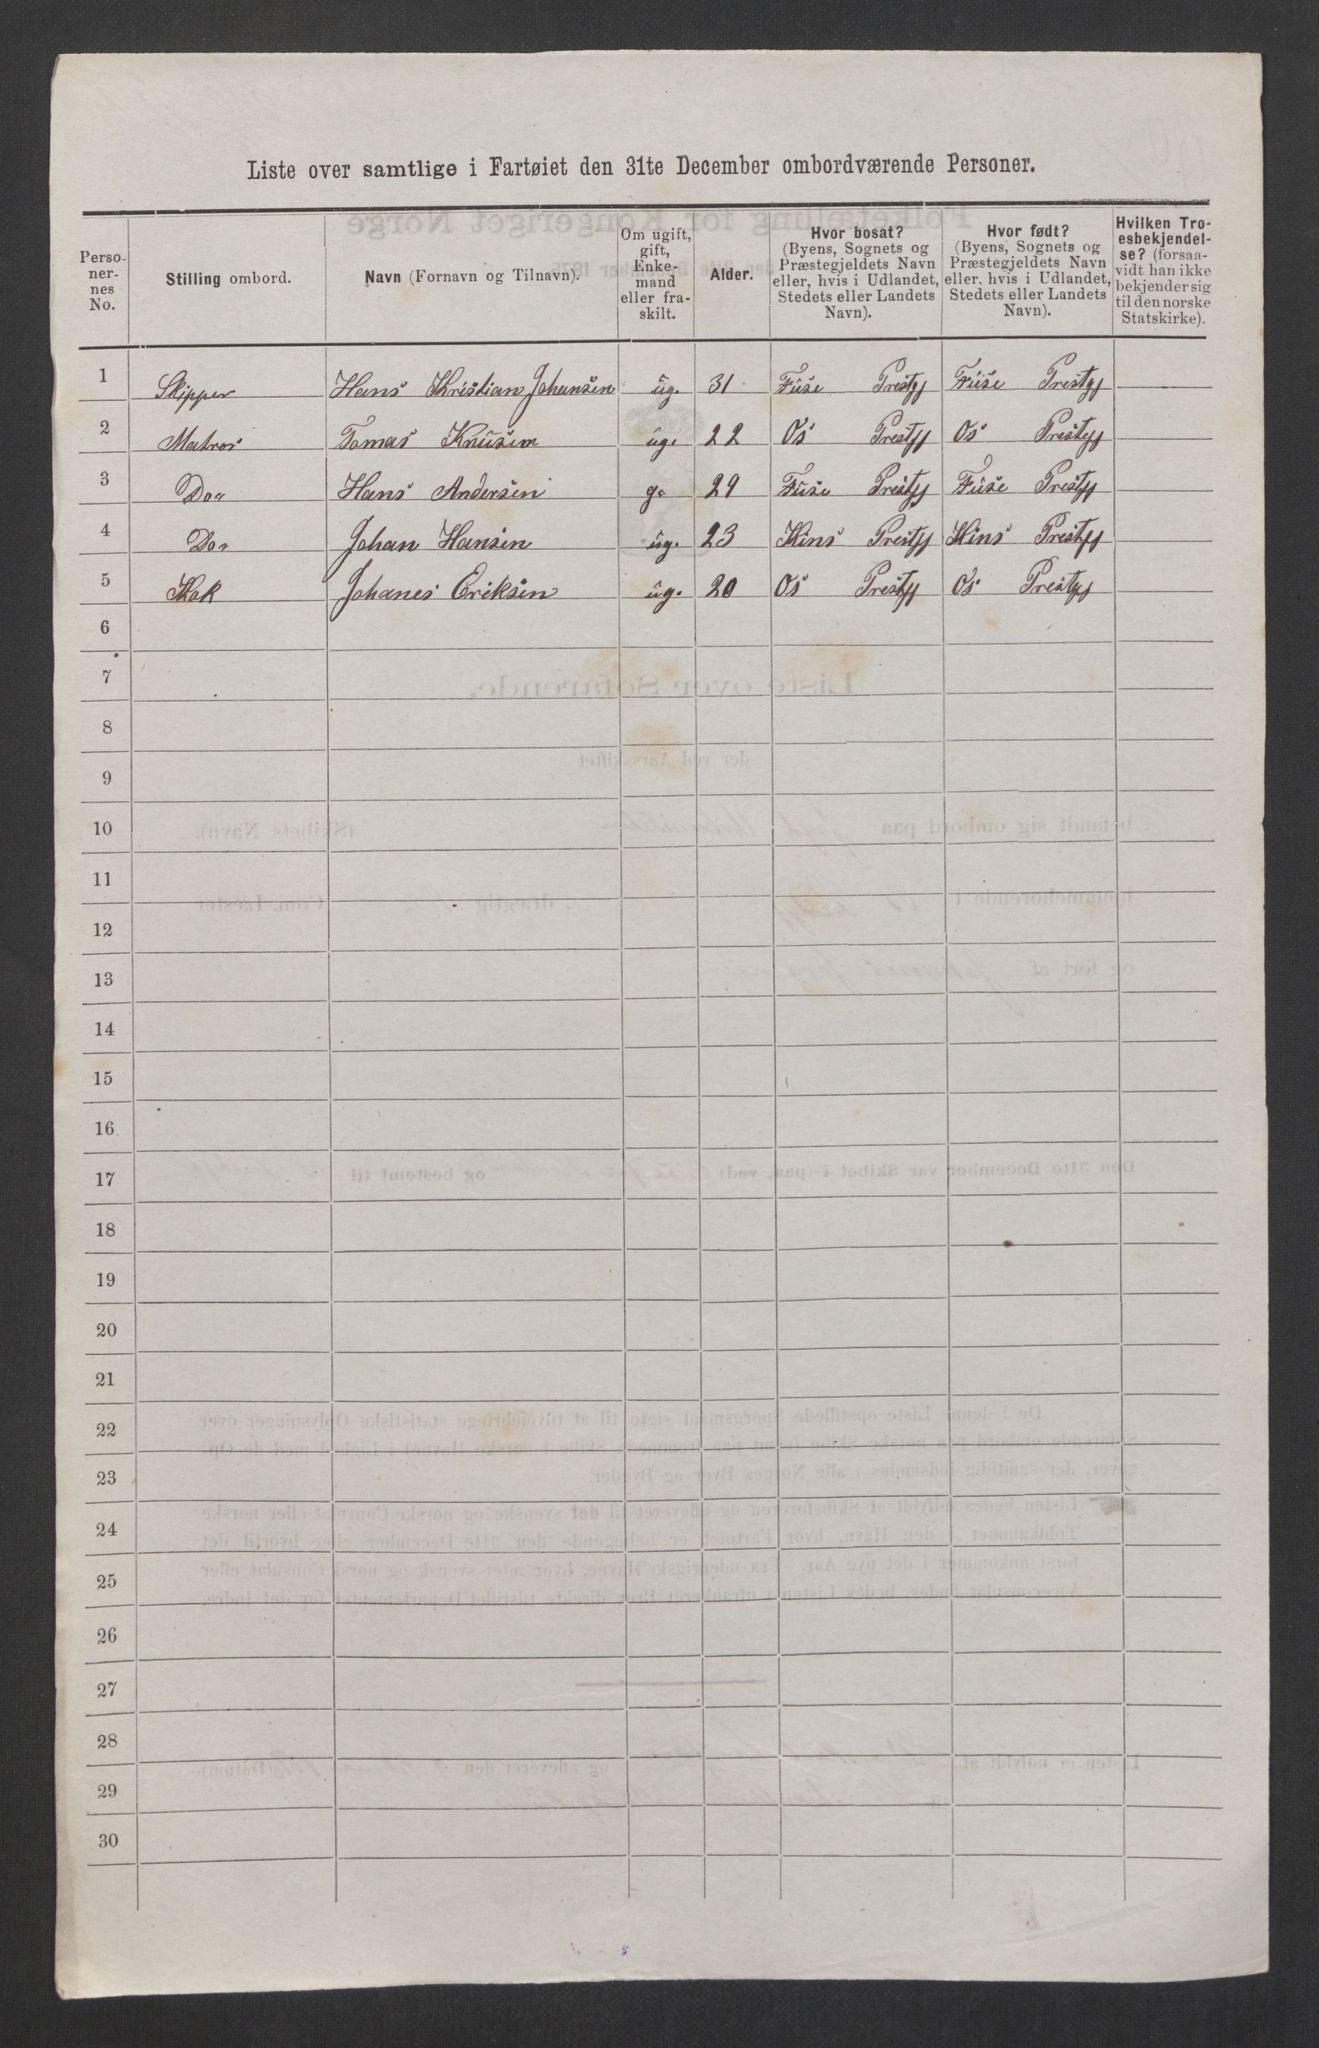 Liste over samtlige i Fartøiet den 31te December ombordværende Personer.
Perso-
ner-
nes
No.
Stilling ombord.
Navn (Fornavn og Tilnavn).
Om ugift,
gift,
Enke-
mand
eller fra-
skilt.
Alder.
Hvor bosat?
(Byens, Sognets og
Præstegjeldets Navn
eller, hvis i Udlandet,
Stedets eller Landets
Navn).
Hvor født?
(Byens, Sognets og
Præstegjeldets Navn
eller, hvis i Udlandet,
Stedets eller Landets
Navn).
Hvilken Tro-
esbekjendel-
se? (forsaa-
vidt han ikke
bekjender sig
til den norske
Statskirke).
1 Skipper Hans Khristian Johansen ug. 31 Fuse Prestgj Fuse Prestgj
2 Matros Tomas Knusen ug. 22 Os Prestgj Os Prestgj
3 Do Hans Andersen g. 29 Fuse Prestgj Fuse Prestgj
4 Do Johan Hansen ug. 23 Kins Prestgj Kins Prestgj
5 Kok Johanes Eriksen ug. 20 Os Prestgj Os Prestgj
6
7
8
9
10
11
12
13
14
15
16
17
18
19
20
21
22
23
24
25
26
27
28
29
30